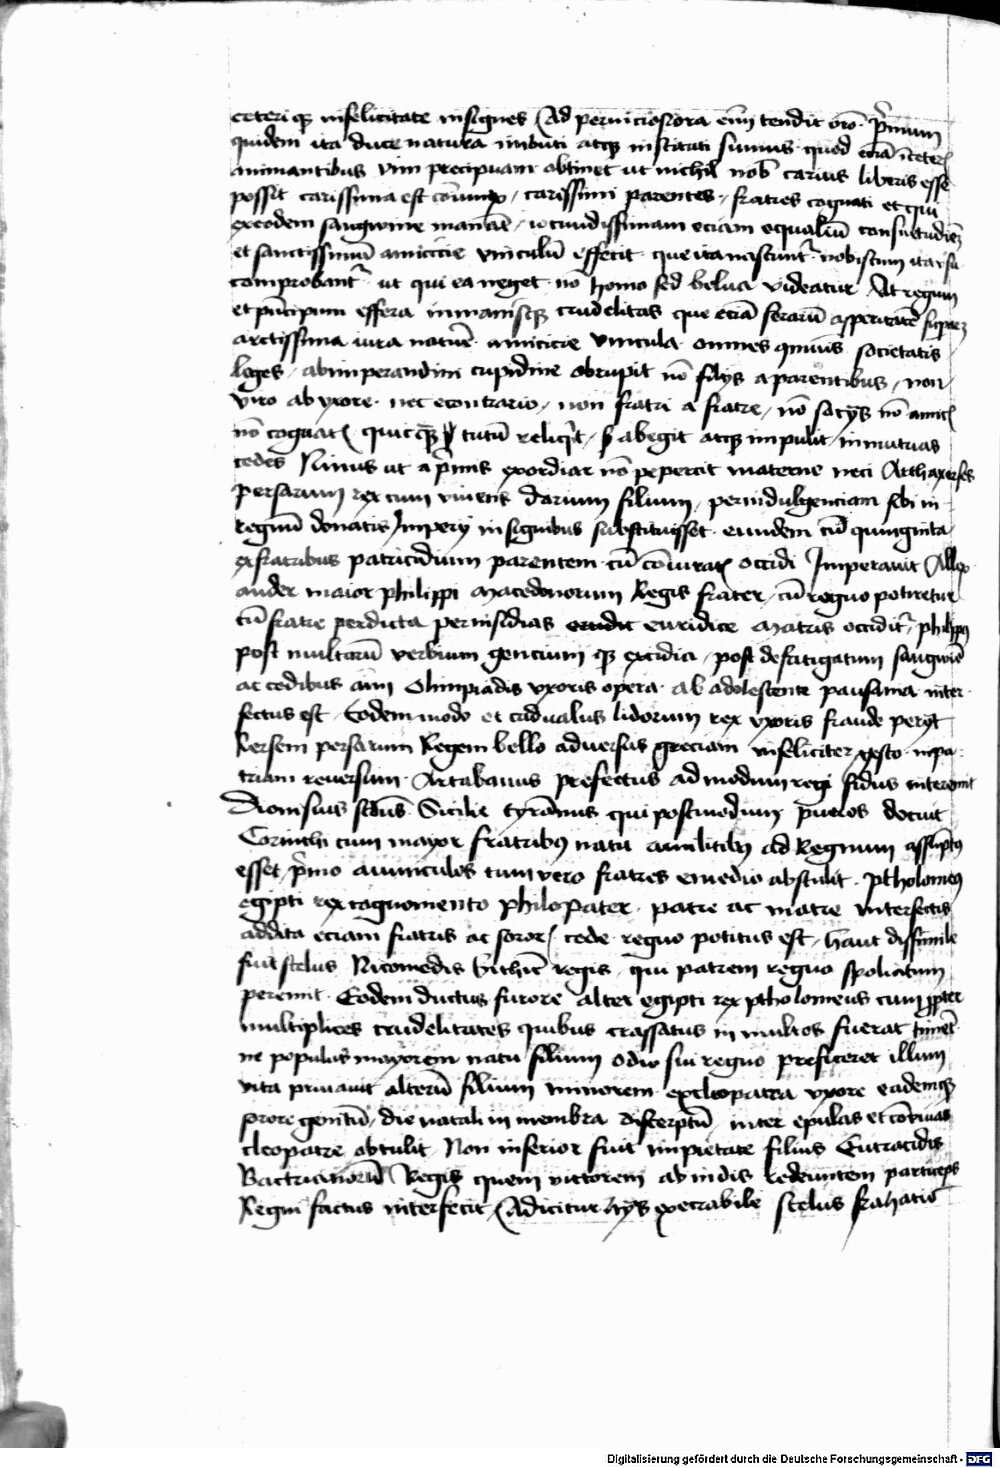 ceteriqꝫ infelicitate insignes Ad perniciosiora em̄ tendit orō p̄mum
quidem ita duce natura imbuti atqꝫ instituti sumus quod eciā ī ceteris
animantibus vim precipuam obtinet ut nichil nob̄ carius liberis esse
possit carissima est coniunx / carissimi parentes / fratres cognati et qui
ex eodem sangwine manāt / iocundissimam eciam equaliū consuetudinē
et sanctissimū amicicie vinculū effecit que ita nascunt᷑ nobiscum ita
comprobant᷑ ut qui ea neget nō homo sed belua videatur At regum
et prīcipum effera inmanisqꝫ crudelitas que eciā ferarū asperitatē superat
arctissima iura nature amicicie vincula omnes qmūis societatis
leges / ab imperandi cupidine obrupit nō filijs a parentibus / non
viro ab vxore nec econtrario / non fratri a fratre / nō socijs nō amicis
nō cognatis quicqꝫ tutū reliqᵗ / sꝫ abegit atqꝫ impulit in mutuas
cedes Ninus ut a p̄mis exordiar nō pepercit materne neci Arthaxerses
persarum rex cum vivens darium filium / per indulgenciam sibi in
regnū donatis Imperij insignibus substituisset eundem cū quinginta
ex fratribus patricidium parentem cū coniuratis occidi Imperavit Allex
ander maior philippi macedonorum Regis frater / cū regno potiretur
cū fratre perdicta per insidias euridice matris occidit᷑ / philippus
post multarū vrbium gencium qꝫ excidia / post defatigatum sangwine
ac cedibus aīm Olimpiadis vxoris opera ab adolescente pausania inter
fectus est Eodem modo et cadualus lidorum rex vxoris fraude perijt
Xersem persarum Regem bello adversus greciam infeliciter gesto in pa
triam reversum Artabanus prefectus admodum regi fidus interemit
Dionisius secdūs Sicilie tyrānus qui postmodum pueros docuit
Corinthi cum mayor fratribus natu a militibꝫ ad Regnum assūptus
esset / p̄mo avunculos tum vero fratres e medio abstulit Ptholomeus
egipti rex cognomento philopater patre ac matre interfectis
addita eciam fratris ac sororis cede regno potitus est / haut dissimile
fuit scelus Nicomedis bithinie regis / qui patrem regno spoliatum
peremit Eodem ductus furore alter egipti rex ptholomeus cum ꝓpter
multiplices crudelitates quibus crassatus in multos fuerat timēt
ne populus mayorem natu filium odio sui regno preficeret illum
vita privavit alterū filium minorem ex cleopatra vxore eademqꝫ
sorore genitū / die natali in membra discerptū / inter epulas et convivas
cleopatre obtulit Non inferior fuit impietate filius Eucracidis
Bactrianorū Regis quem victorem ab indis redeuntem particeps
Regni factus interfecit / Adicitur hijs execrabile scelus frahatis
Digitalisierung gefördert durch die Deutsche Forschungsgemeinschaft - DFG